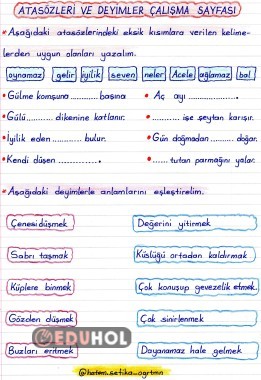 ATASÖZLERİ VE DEYİMLER ÇALIŞMA SAYFASI
• Aşağıdaki atasözlerindeki eksik kısımlara verilen kelime-
lerden uygun olanları yazalım.
oynamaz gelir iyilik seven neler Acele ağlamaz bal
• Gülme komşuna .......... başına. • Aç ayı ...............
• Gülü .......... dikenine katlanır. • .......... işe şeytan karışır.
• İyilik eden .......... bulur. • Gün doğmadan .......... doğar.
• Kendi düşen ............. • ...... tutan parmağını yalar.
• Aşağıdaki deyimlerle anlamlarını eşleştirelim.
Çenesi düşmek Değerini yitirmek
Sabrı taşmak Küslüğü ortadan kaldırmak
Küplere binmek Çok konuşup gevezelik etmek.
Gözden düşmek Çok sinirlenmek
Buzları eritmek Dayanamaz hale gelmek
EDUHOL
@hatem.setika_ogrtmn